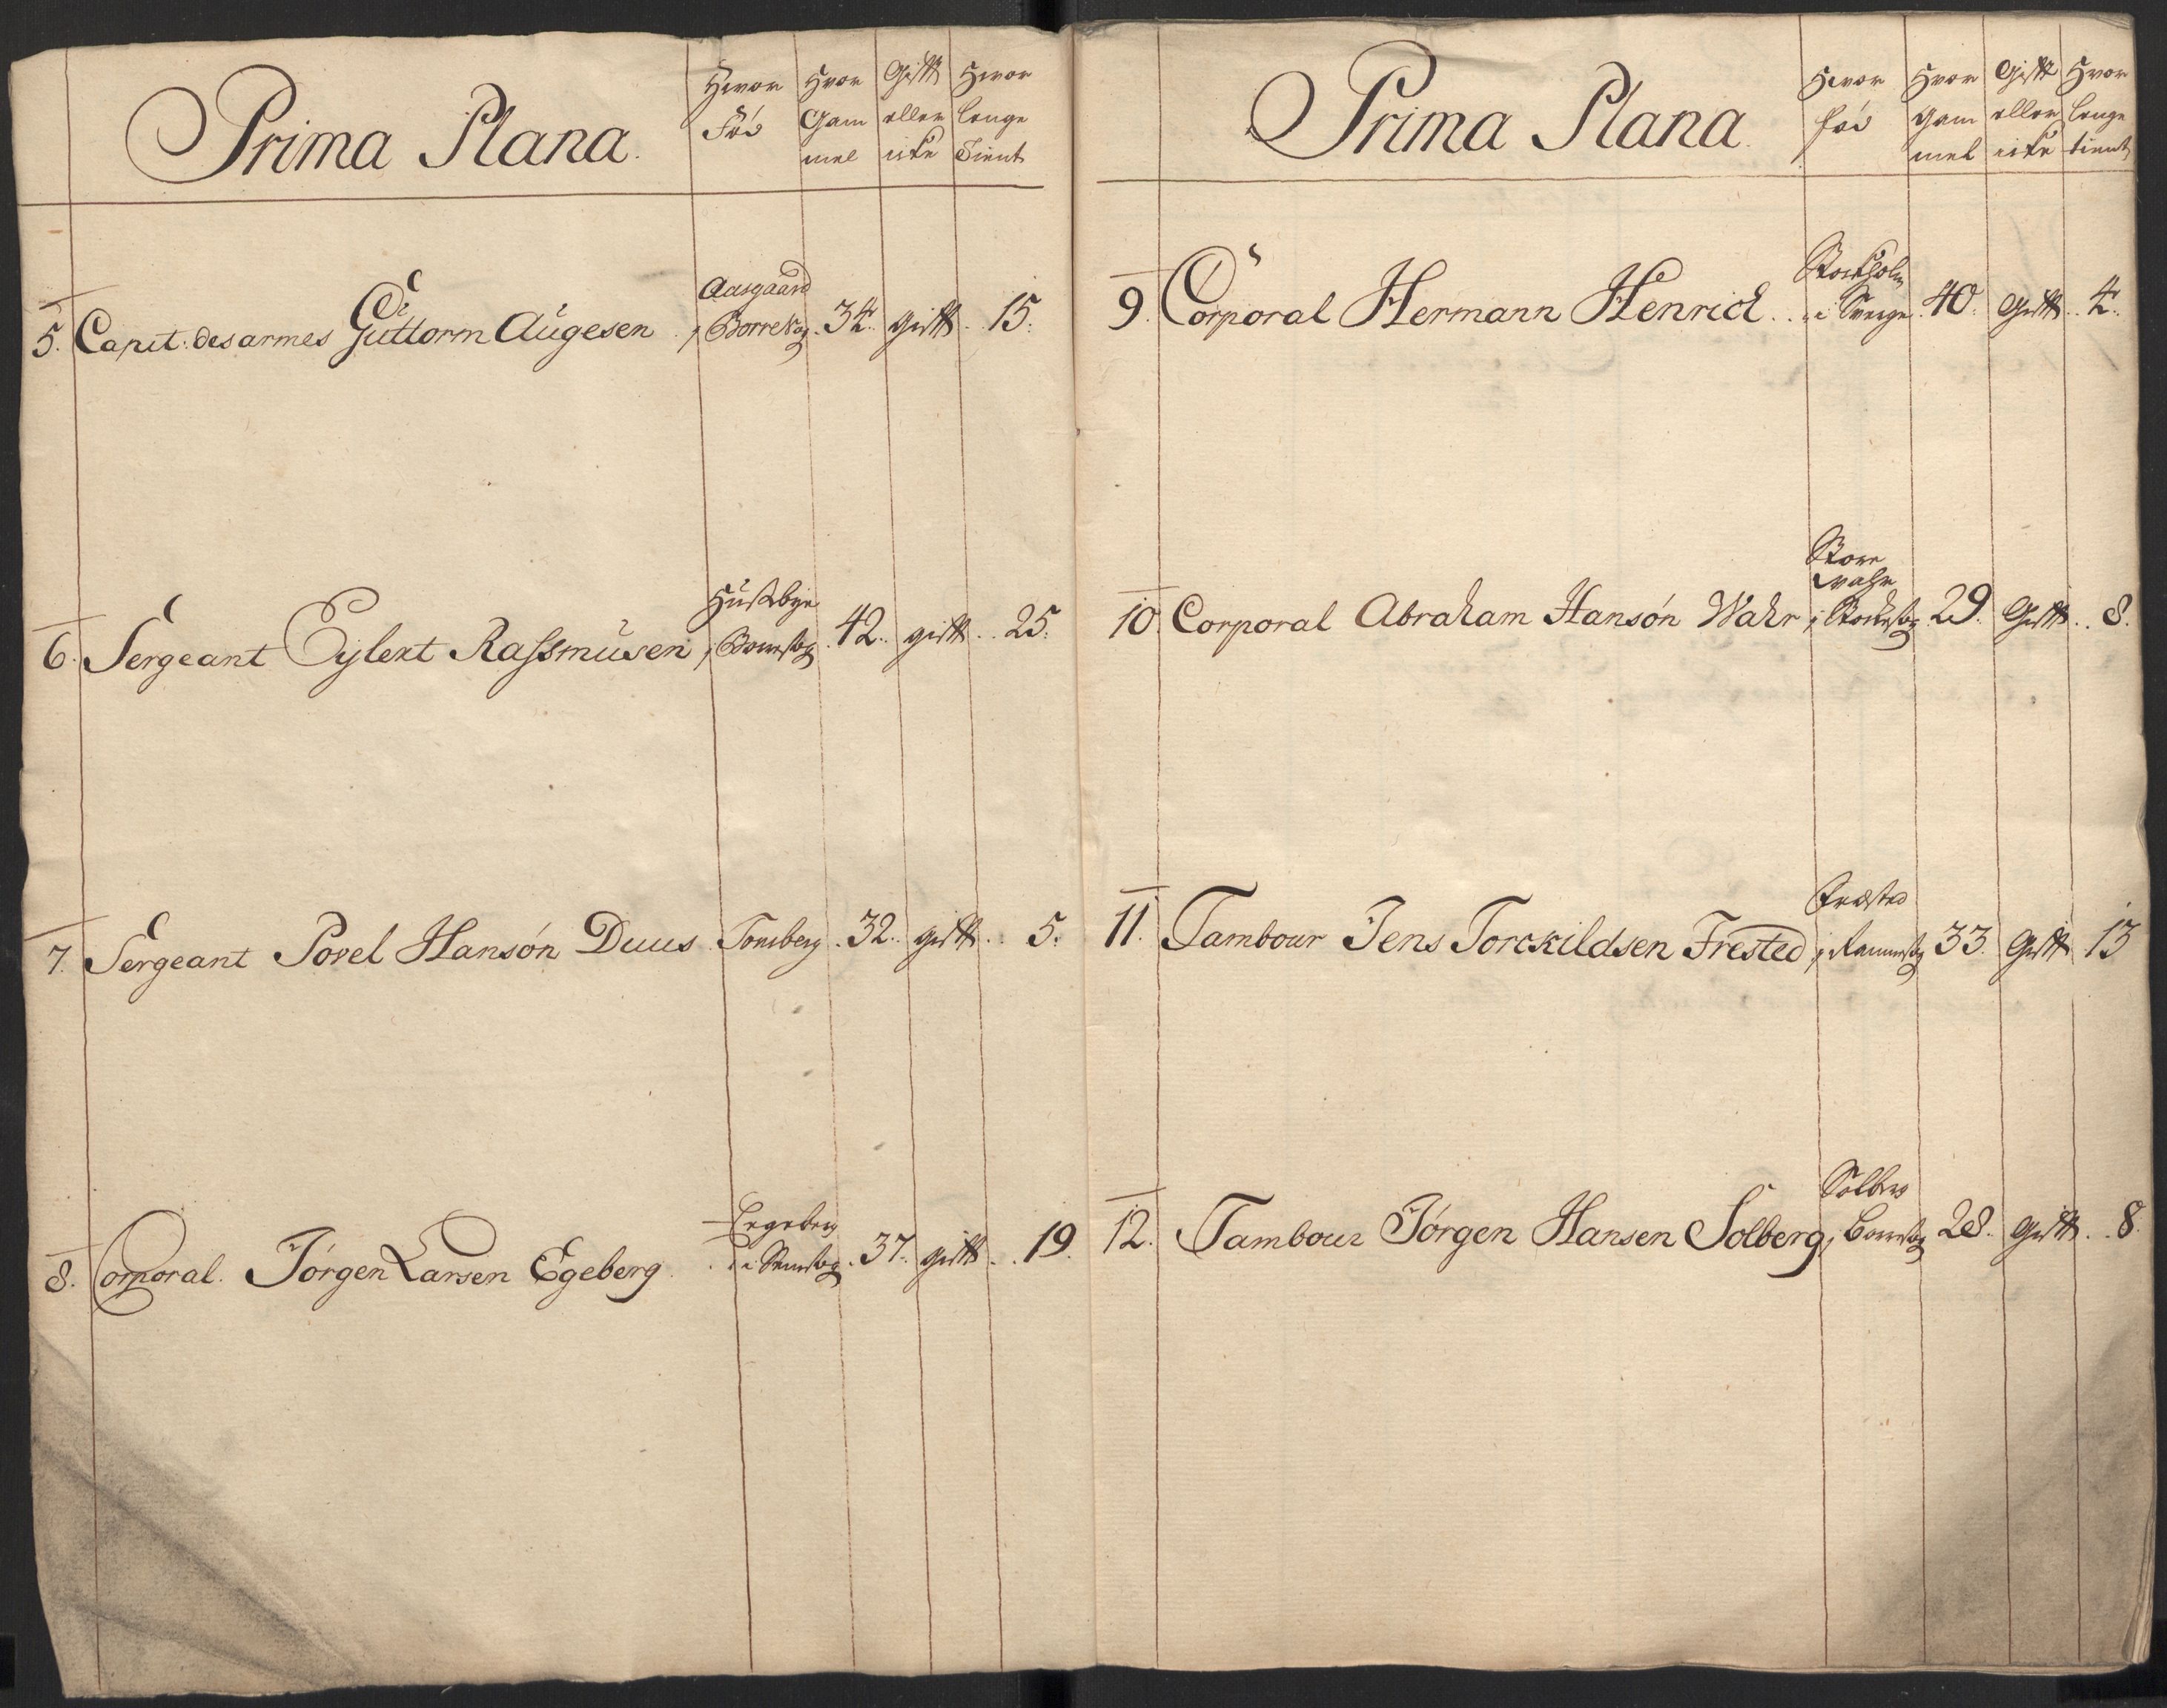 Prima Plana.
Hvor Født
Hvor Gammel
Gift eller icke
Hvor lenge Tient
5. Capit: des armes Guttorm Augesen
Aasgaard
i Borre sog. 34. gift. 15.
6. Sergeant Eylert Rassmusen
Husebye
i 42. gift. 25.
7. Sergeant Povel Hansøn Duus Tonsberg. 32. gift. 5.
8. Corporal. Jørgen Larsen Egeberg
Eegeberg
i 37. gift. 19.
Prima Plana.
Hvor fød
Hvor gammel
Gift eller icke
Hvor lenge tient
9. Corporal Hermann Henrich
Stockholm
i Sverge. 40. Gift. 4.
10. Corporal Abraham Hansøn Wahr
Store
i 29. Gift. 8.
11. Tambour Jens Torckildsen Frested
Fræsted
i Ramnes sog 33. Gift 13
12. Tambour Jørgen Hansen Solberg
Solberg
i 28. gift. 8.